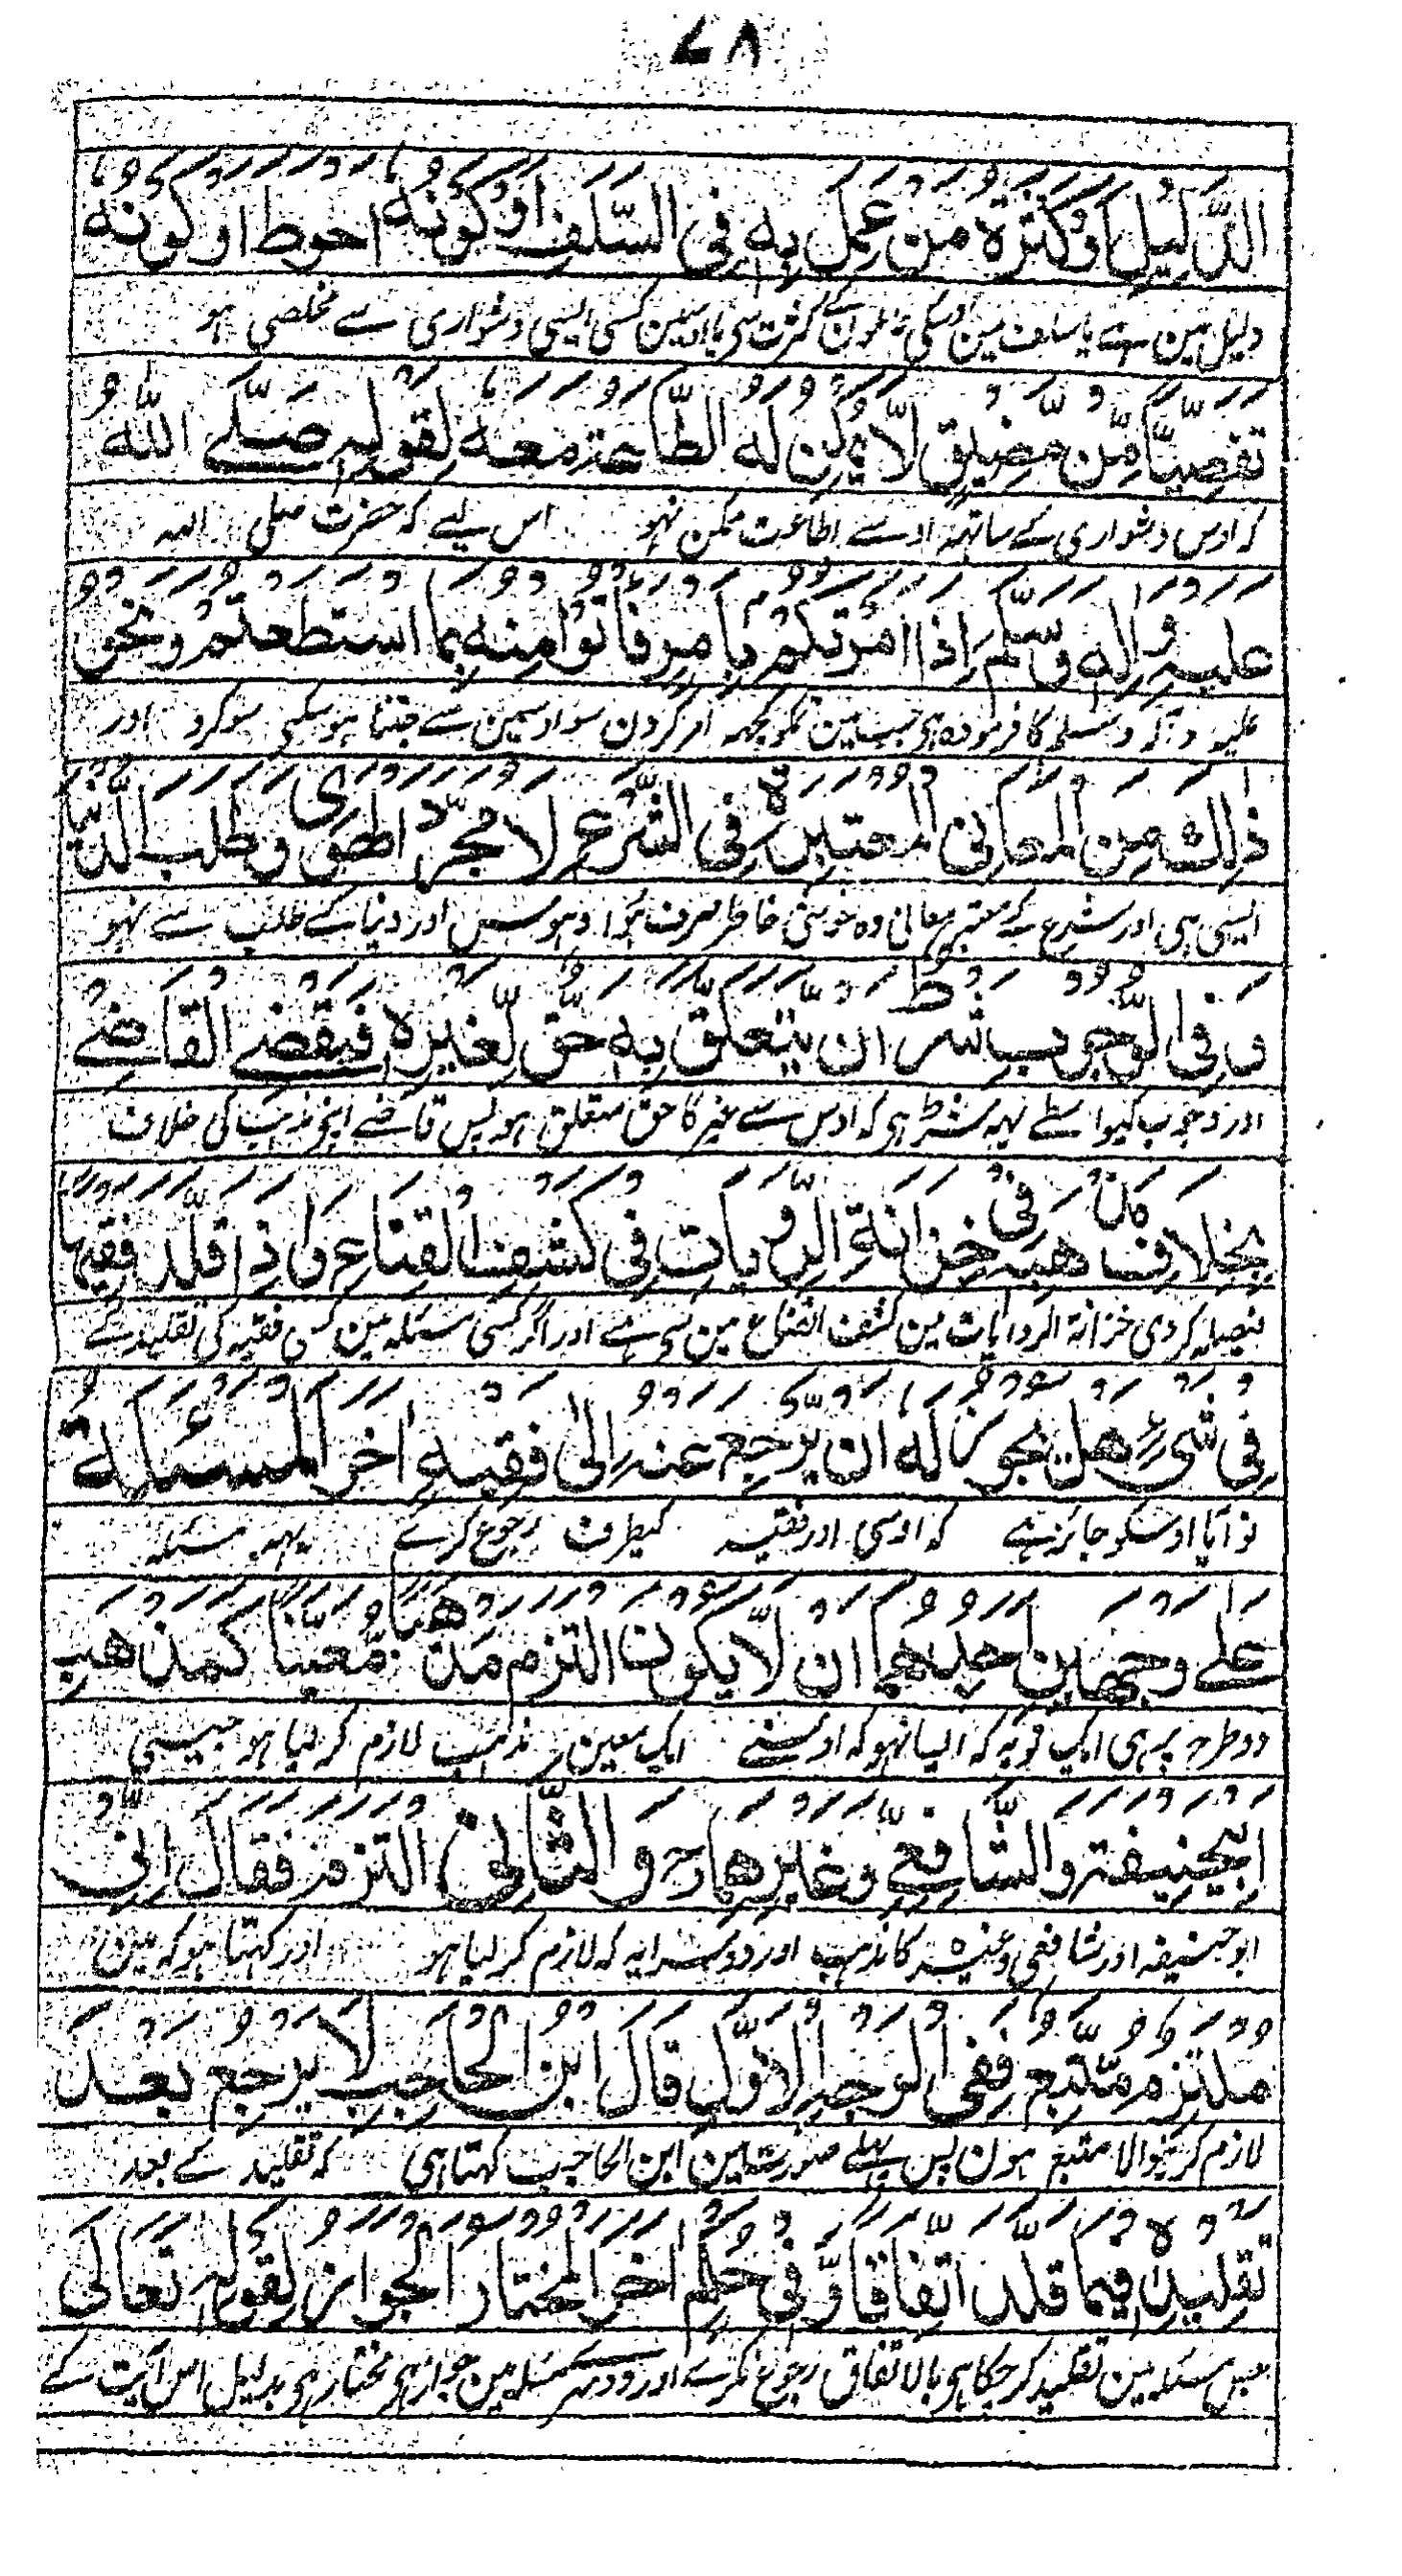 ٧٨
الدَّلِيلِ اَوْ كَثْرَةِ مَنْ عَمِلَ بِهٖ فِي السَّلَفِ اَوْ كَوْنُهٗ اَحْوَطَ اَوْ كَوْنُهٗ
دلیل مین ہے یا سلف مین اوسکی عاملون کے کثرت سی یا اوسمین کسی ایسی دشواری سے مخلصی ہو
تَفَصِّيًا مِّنْ مَّضِيْقٍ لَّا يُمْكِنُ لَهُ الطَّاعَةُ مَعَهٗ لِقَوْلِهٖ صَلَّى اللّٰهُ
کہ اوس دشواری کے ساتھہ اوسے اطاعت ممکن نہو اس لیے کہ حضرت صلی اللہ
عَلَيْهِ وَاٰلِهٖ وَسَلَّمَ اِذَا اَمَرْتُكُمْ بِاَمْرٍ فَأْتُوْا مِنْهُ بِمَا اسْتَطَعْتُمْ وَنَحْوُ
علیہ و آلہ وسلم کا فرمودہ ہی جب مین تمکو کچہہ امر کرون سو اوسمین سے جتنا ہو سکی سو کرو اور
ذٰلِكَ مِنَ الْمَعَانِي الْمُعْتَبَرَةِ فِي الشَّرْعِ لَا مُجَرَّدِ الْهَوٰى وَطَلَبِ الدُّنْيَا
ایسی ہی اور شرع کے معتبر معانی وہ خوشی خاطر صرف ہوا وہوس اور دنیا کے طلب سے نہو
وَفِي الْوُجُوْبِ شَرْطُ اَنْ يَّتَعَلَّقَ بِهٖ حَقٌّ لِّغَيْرِهٖ فَيَقْضِي الْقَاضِيْ
اور وجوب کیواسطے یہہ شرط ہی کہ اوس سے غیر کا حق متعلق ہو پس قاضے اپنی مذہب کی خلاف
بِخِلَافِ مَذْهَبِهٖ فِيْ خِزَانَةِ الرِّوَايَاتِ فِيْ كَشْفِ الْقِنَاعِ وَاِذَا قَلَّدَ فَقِيْهًا
فیصلہ کر دی خزانۃ الروایات مین کشف القناع مین سی ہے اور اگر کسی مسئلہ مین کسی فقیہ کی تقلید کے
فِيْ شَيْءٍ هَلْ يَجُوْزُ لَهٗ اَنْ يَّرْجِعَ عَنْهُ اِلٰى فَقِيْهٍ اٰخَرَ الْمَسْئَلَةُ
تو آیا اوسکو جائز ہے کہ اوسی اور فقیہ کیطرف رجوع کرے یہہ مسئلہ
عَلٰى وَجْهَيْنِ اَحَدُهُمَا اَنْ لَّا يَكُوْنَ الْتَزَمَ مَذْهَبًا مُّعَيَّنًا كَمَذْهَبِ
دو طرح پر ہی ایک تو یہ کہ ایسا نہو کہ اوسنے ایک معین مذہب لازم کر لیا ہو جیسی
اَبِيْحَنِيْفَةَ وَالشَّافِعِيِّ وَغَيْرِهِمَا رح وَالثَّانِيْ اَلْتَزَمَ فَقَالَ اِنِّيْ
ابو حنیفہ اور شافعی وغیرہ کا مذہب اور دوسرا یہ کہ لازم کر لیا ہو اور کہتا ہو کہ مین
مُلْتَزِمٌ مُّتَّبِعٌ فَفِي الْوَجْهِ الْاَوَّلِ قَالَ ابْنُ الْحَاجِبِ لَا يَرْجِعُ بَعْدَ
لازم کرنیوالا متبع ہون پس پہلے صورت مین ابن الحاجب کہتا ہی کہ تقلید کے بعد
تَقْلِيْدِهٖ فِيْمَا قَلَّدَ اتِّفَاقًا وَّفِيْ حُكْمٍ اٰخَرَ الْمُخْتَارُ الْجَوَازُ لِقَوْلِهٖ تَعَالٰى
جس مسئلہ مین تقلید کر چکا ہی بالاتفاق رجوع نکرے اور دوسرے مسئلہ مین جواز ہی مختار ہی بدلیل اس آیت کے